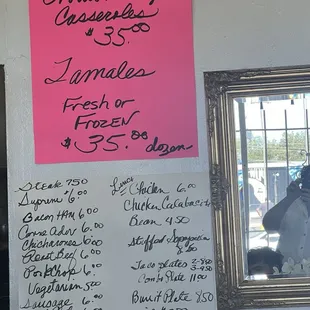 Casseroles
$35.00
Tamales
Fresh or
Frozen
$35.00 dozen
Steak 750
Supreme 6.00
Bacon HAM 6.00
Carne Adov 6.00
Chicharones 6.00
Roast Beef 6.00
Pork Chop 6.
Vegetarian 5.00
Sausage 6.00
Lunch
Chicken 6.00
Chicken Calabacita
Bean 4.50
Stuffed Sopapilla
Taco plates 2-8.50
3-9.50
Combo Plate 11.00
Burrit Plate 8.50